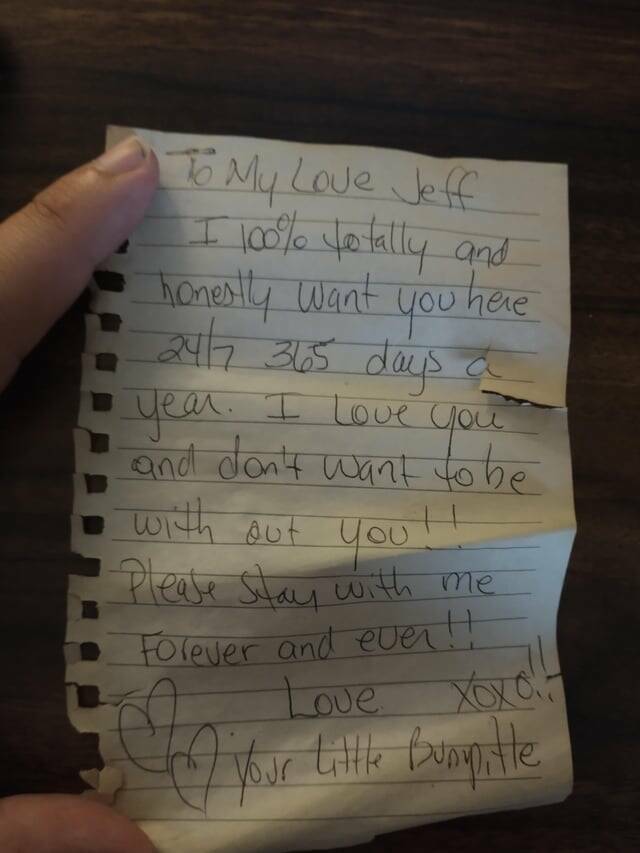 To My Love Jeff
I 100% totally and
honestly want you here
24/7 365 days a
year. I Love you
and don't want to be
with out you!!
Please stay with me
Forever and ever!!
Love XOXO!!
Your Little